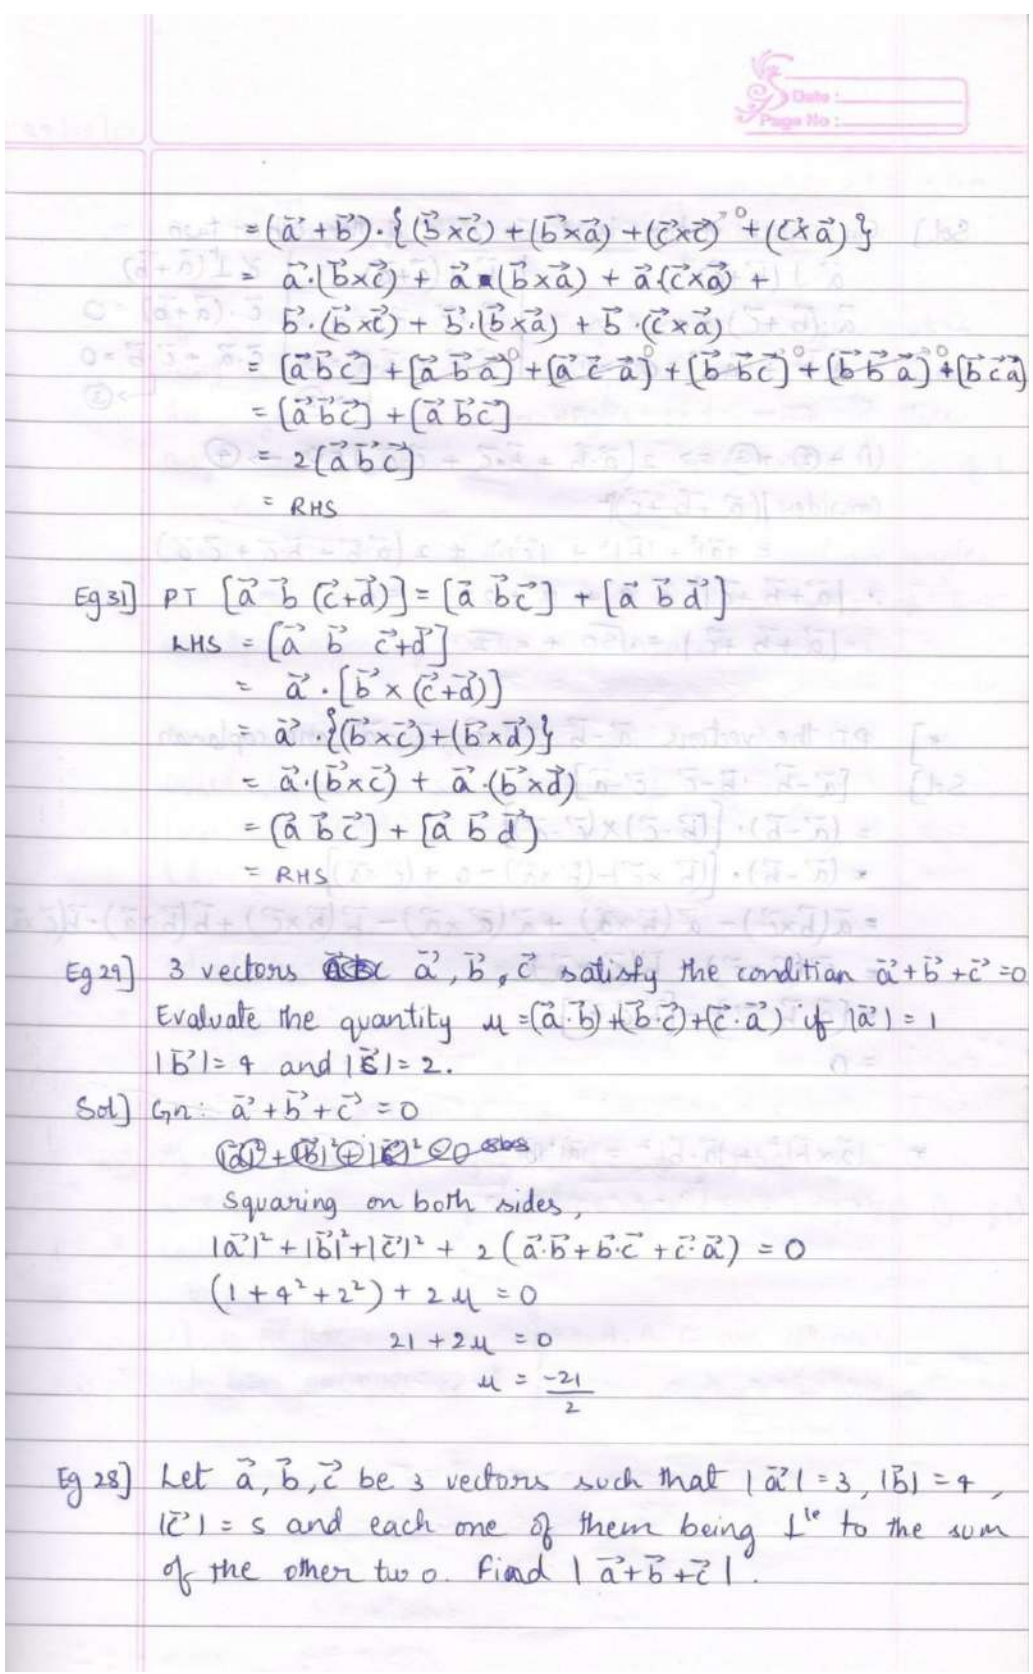 Date :
Page No :
= (a⃗ + b⃗)·{(b⃗×c⃗) + (b⃗×a⃗) + (c⃗×c⃗)→0 + (c×a⃗)}
= a⃗·(b⃗×c⃗) + a⃗·(b⃗×a⃗) + a⃗·(c⃗×a⃗) +
b⃗·(b⃗×c⃗) + b⃗·(b⃗×a⃗) + b⃗·(c⃗×a⃗)
= [a⃗ b⃗ c⃗] + [a⃗ b⃗ a⃗]⁰ + [a⃗ c⃗ a⃗]⁰ + [b⃗ b⃗ c⃗]⁰ + [b⃗ b⃗ a⃗]⁰ + [b⃗ c⃗ a⃗]
= [a⃗ b⃗ c⃗] + [a⃗ b⃗ c⃗]
= 2[a⃗ b⃗ c⃗]
= RHS
Eg 31] PT [a⃗ b⃗ (c⃗+d⃗)] = [a⃗ b⃗ c⃗] + [a⃗ b⃗ d⃗]
LHS = [a⃗ b⃗ c⃗+d⃗]
= a⃗ · [b⃗ × (c⃗+d⃗)]
= a⃗ · {(b⃗×c⃗) + (b⃗×d⃗)}
= a⃗·(b⃗×c⃗) + a⃗·(b⃗×d⃗)
= [a⃗ b⃗ c⃗] + [a⃗ b⃗ d⃗]
= RHS
Eg 29] 3 vectors a⃗, b⃗, c⃗ satisfy the condition a⃗+b⃗+c⃗=0
Evaluate the quantity μ = (a⃗·b⃗)+(b⃗·c⃗)+(c⃗·a⃗) if |a⃗| = 1
|b⃗|= 4 and |c⃗|= 2.
Sol] Gn: a⃗+b⃗+c⃗ = 0
Squaring on both sides,
|a⃗|² + |b⃗|² + |c⃗|² + 2 (a⃗·b⃗ + b⃗·c⃗ + c⃗·a⃗) = 0
(1 + 4² + 2²) + 2μ = 0
21 + 2μ = 0
μ = -21/2
Eg 28] Let a⃗, b⃗, c⃗ be 3 vectors such that |a⃗| = 3, |b⃗| = 4,
|c⃗| = 5 and each one of them being ⊥le to the sum
of the other two. Find |a⃗+b⃗+c⃗|.